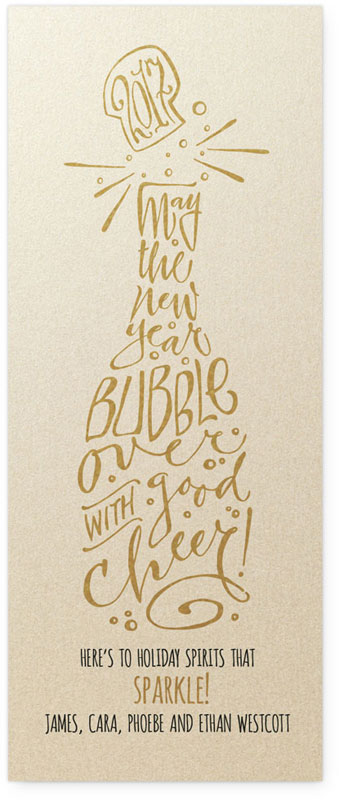 2017
May
the
new
year
BUBBLE
over
WITH good
cheer!
HERE'S TO HOLIDAY SPIRITS THAT
SPARKLE!
JAMES, CARA, PHOEBE AND ETHAN WESTCOTT